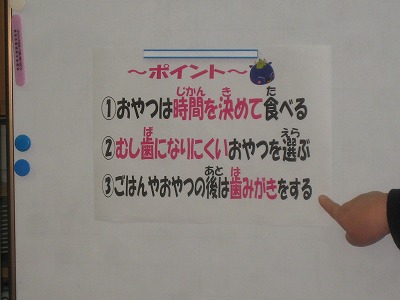 ～ポイント～
①おやつは時間を決めて食べる
②むし歯になりにくいおやつを選ぶ
③ごはんやおやつの後は歯みがきをする